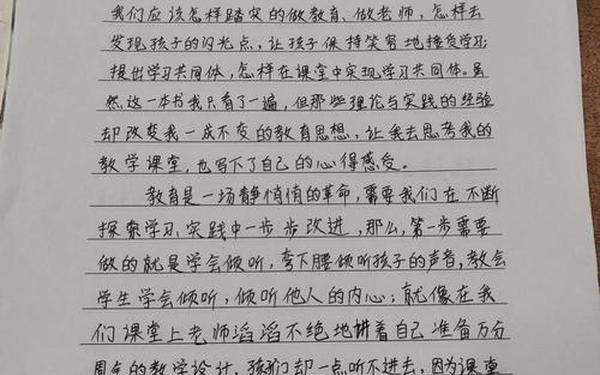 我们应该怎样踏实的做教育、做老师,怎样去
发现孩子的闪光点,让孩子保持笑容地接受学习;
提出学习共同体,怎样在课堂中实现学习共同体。虽
然这一本书我只看了一遍,但那些理论与实践的经验
却改变我一成不变的教育思想,让我去思考我的
教学课堂,也写下了自己的心得感受。
教育是一场静悄悄的革命,需要我们在不断
探索学习实践中一步步改进,那么,第一步需要
做的就是学会倾听,弯下腰倾听孩子的声音,教会
学生学会倾听,倾听他人的内心;就像在我
们课堂上老师滔滔不绝地讲着自己准备万分
周全的教学设计,孩子们却一点听不进去,因为课堂